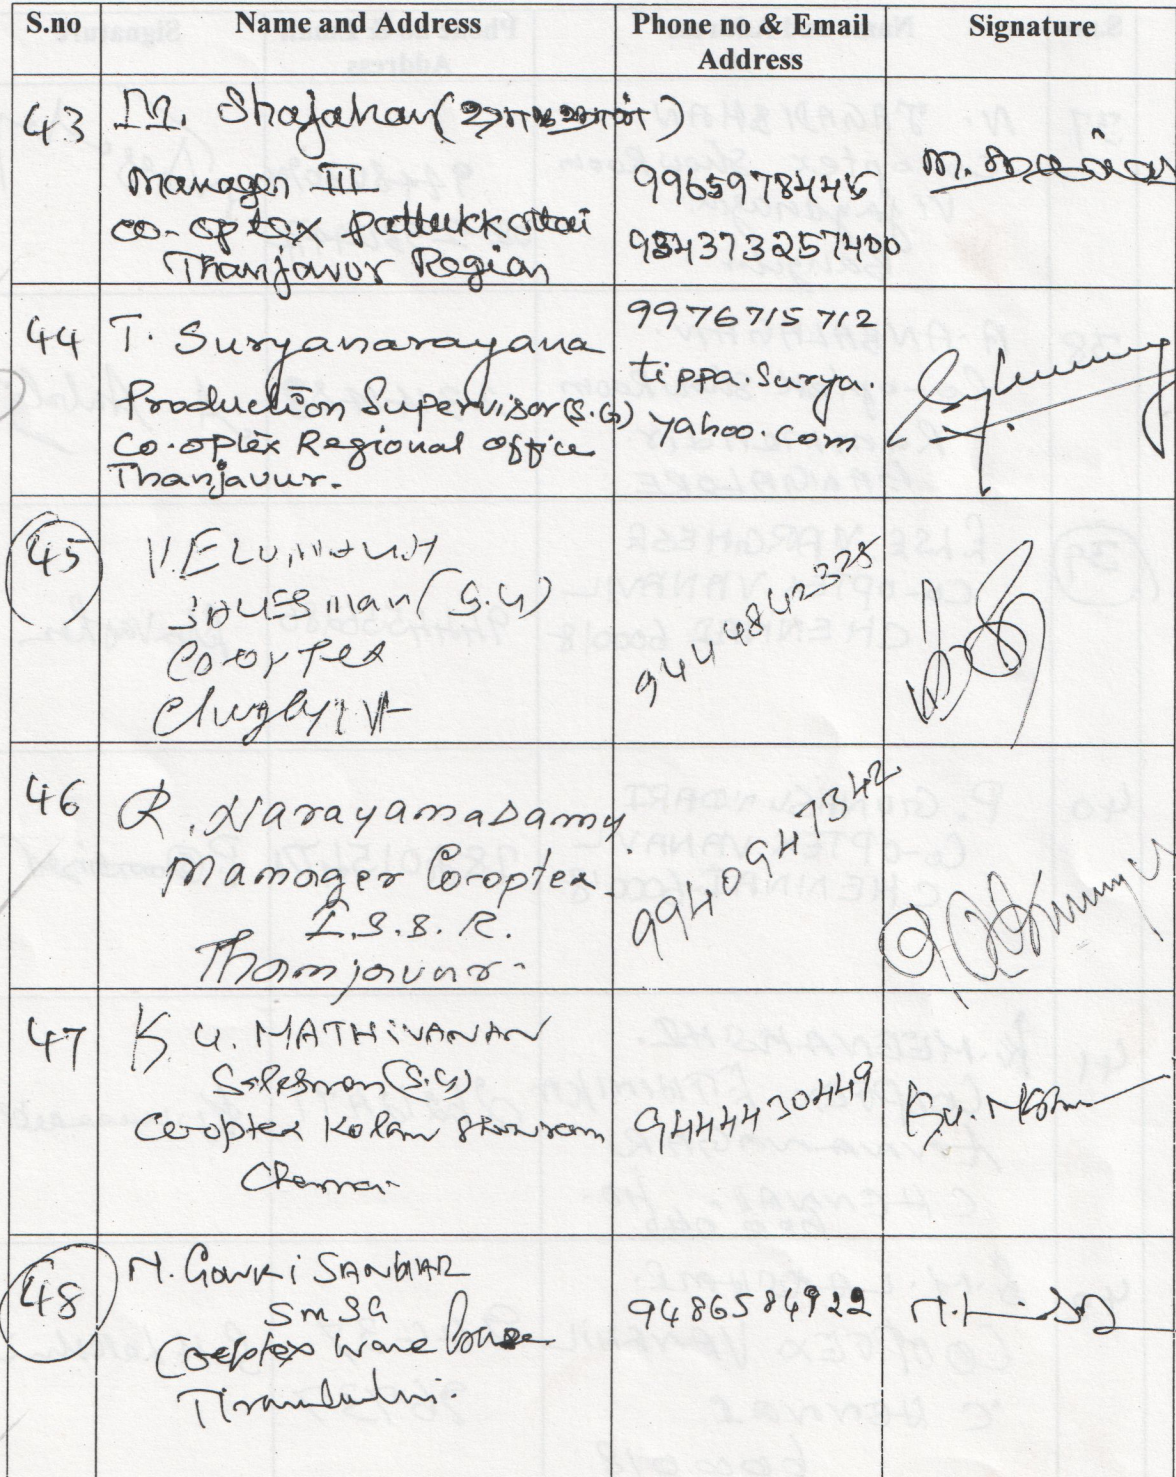 S.no Name and Address Phone no & Email Address Signature
43 M. Shajahan (ஷாஜகான்)
Manager III
co-optex Pattukkottai
Thanjavur Region
44 T. Suryanarayana
Production Supervisor (S.G)
Co.optex Regional office
Thanjavur.
9976715 712
tippa.surya.
yahoo.com
45
salesman (S.G)
Co-optex
9444842325
46 R. Narayanasamy.
Manager Co-optex.
I.S.S.R.
Thanjavur.
9940947342
47 K. U. MATHIVANAN
Salesman (S.G)
Co-optex Kolam Showroom
Chennai
9444430449
48 N. Gowri SANKAR
SM SG
Co-optex Ware house
9486584922